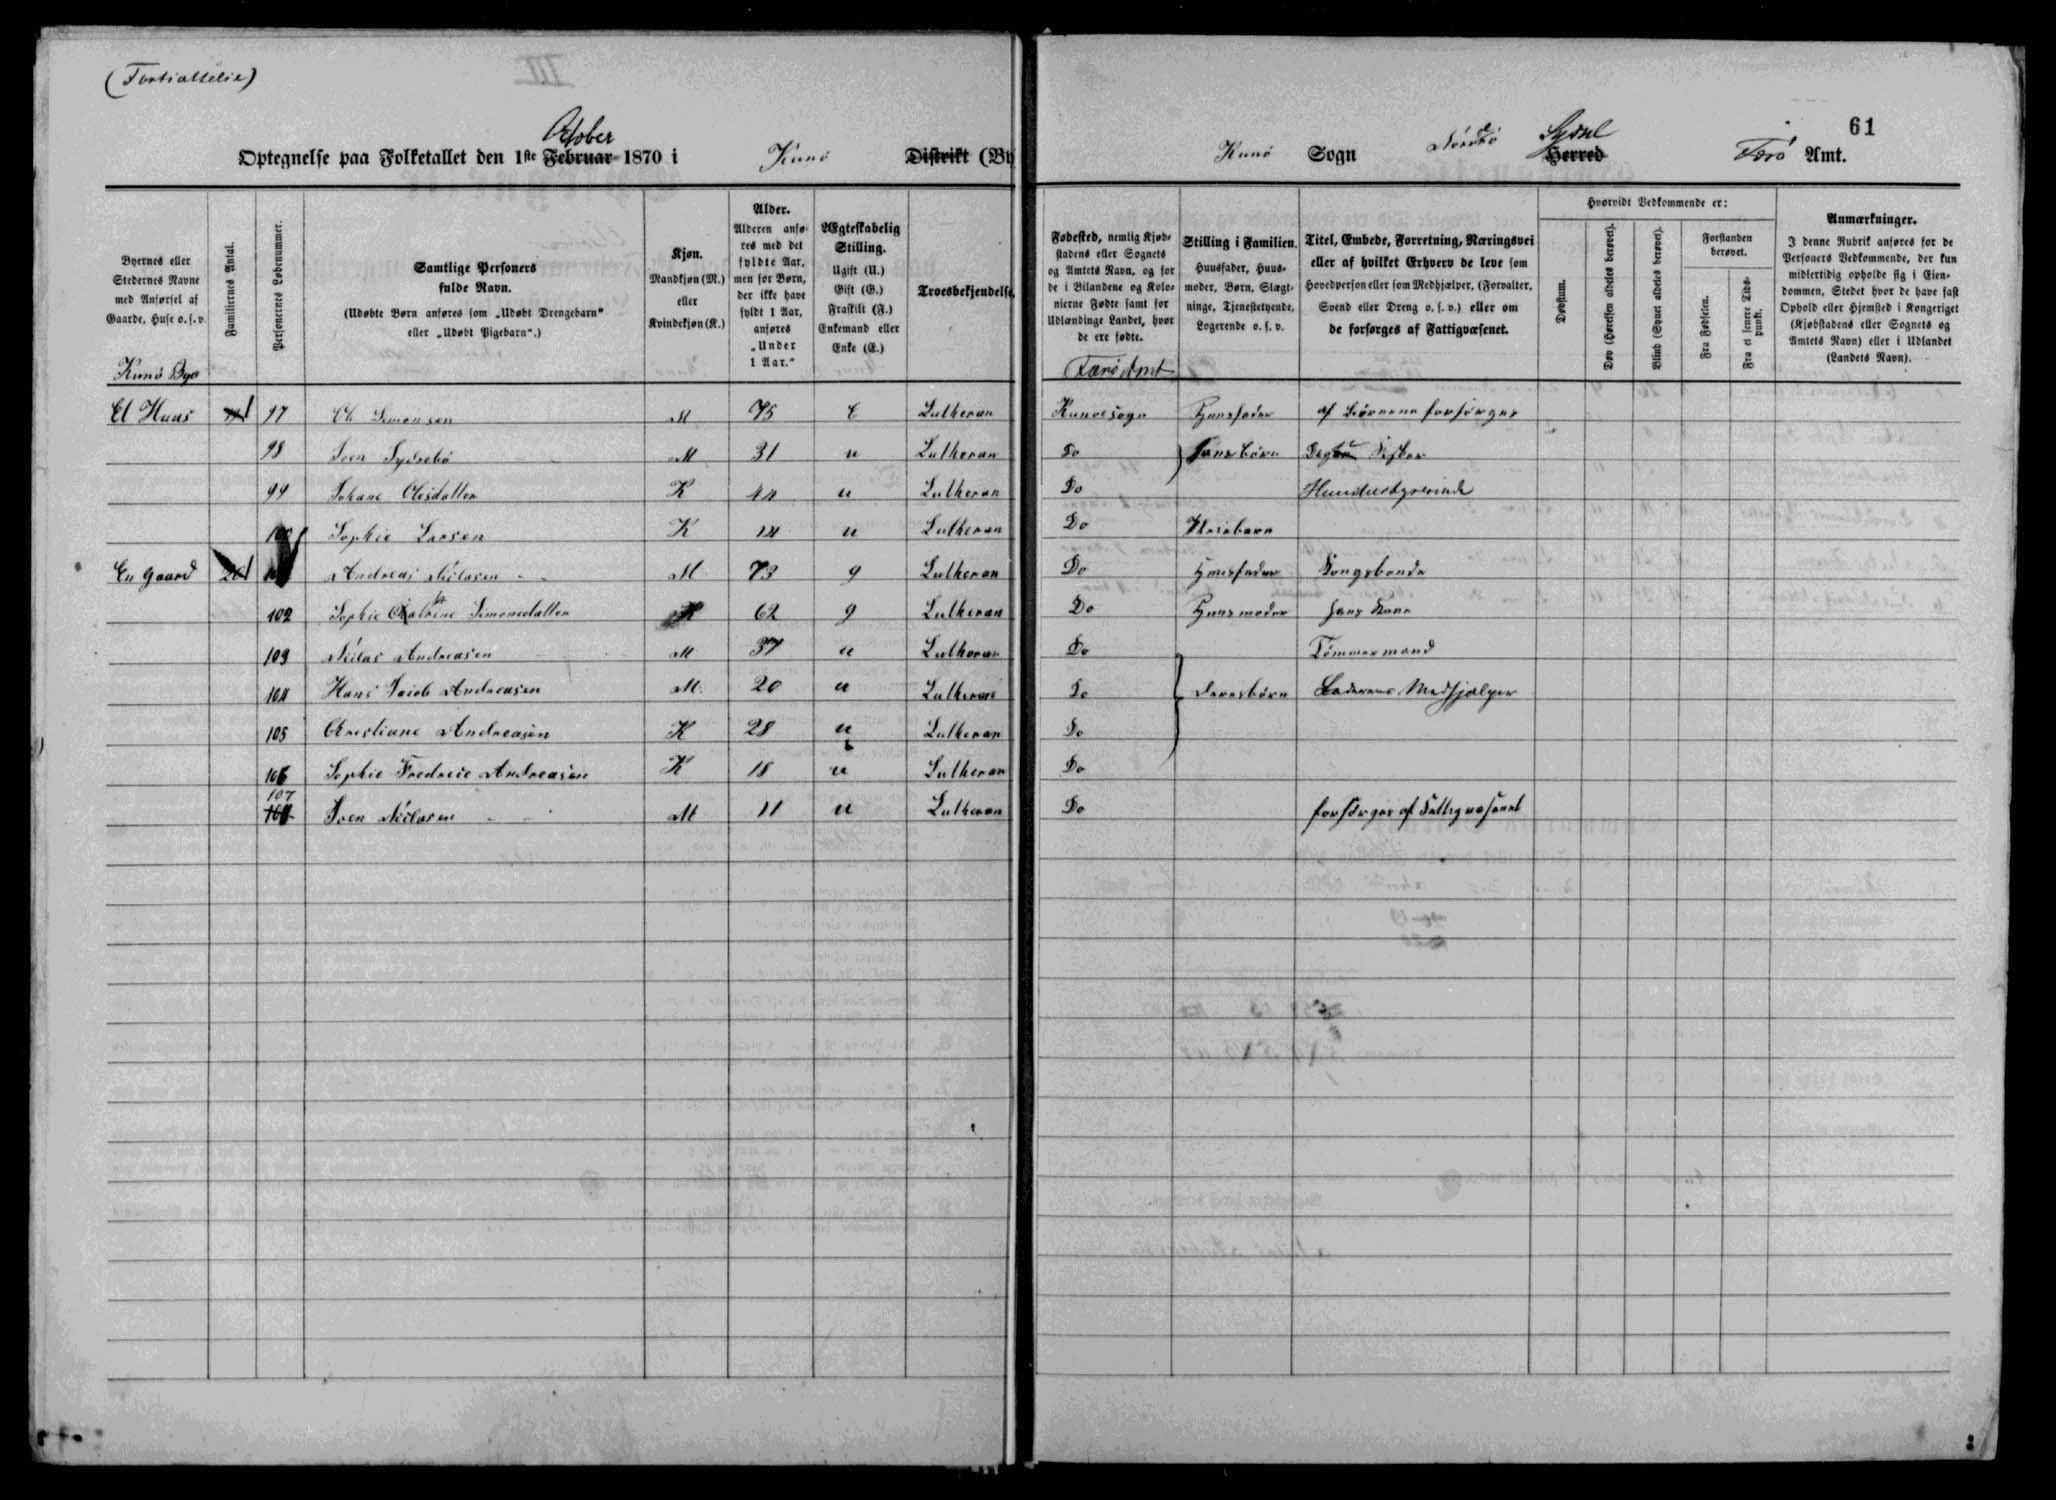 (Fortsættelse)
61
October
Optegnelse paa Folketallet den 1ste Februar 1870 i Kunö Distrikt (By
Kunö Sogn Nordrö Syssel Herred Færö Amt.
Byernes eller Stedernes Navne med Anførsel af Gaarde, Huse o. s. v.
Familiernes Antal.
Personernes Løbenummer.
Samtlige Personers fulde Navn.
(Udøbte Børn anføres som „Udøbt Drengebarn" eller „Udøbt Pigebarn".)
Kjøn.
Mandkjøn (M.) eller Kvindekjøn (K.)
Alder.
Alderen anføres med det fyldte Aar, men for Børn, der ikke have fyldt 1 Aar, anføres „Under 1 Aar."
Ægteskabelig Stilling.
Ugift (U.) Gift (G.) Fraskilt (F.) Enkemand eller Enke (E.)
Troesbekjendelse
Fødested, nemlig Kjøbstadens eller Sognets og Amtets Navn, og for de i Bilandene og Kolonierne Fødte samt for Udlændinge Landet, hvor de ere fødte.
Stilling i Familien.
Huusfader, Huusmoder, Børn, Slægtninge, Tjenestetyende, Logerende o. s. v.
Titel, Embede, Forretning, Næringsvei eller af hvilket Erhverv de leve som Hovedperson eller som Medhjælper, (Forvalter, Svend eller Dreng o. s. v.) eller om de forsørges af Fattigvæsenet.
Hvorvidt Vedkommende er:
Døvstum.
Døv (Hørelsen aldeles berøvet).
Blind (Synet aldeles berøvet).
Forstanden berøvet.
Fra Fødselen.
Fra et senere Tidspunkt.
Anmærkninger.
I denne Rubrik anføres for de Personers Vedkommende, der kun midlertidig opholde sig i Eiendommen, Stedet hvor de have fast Ophold eller Hjemsted i Kongeriget (Kjøbstadens eller Sognets og Amtets Navn) eller i Udlandet (Landets Navn).
Kunö Bye
Færö Amt
Et Huus 97 Ole Simonsen M 75 E Lutheran Kunoesogn Huusfader af Börnene forsörges
98 Joen M 31 u Lutheran Do hans börn Fisker
99 Johane Olesdatter K 44 u Lutheran Do Huusbestyrerinde
100 Sophie Larsen K 14 u Lutheran Do Pleiebarn
En Gaard 20 101 Andreas Niclasen M 73 g Lutheran Do Huusfader Kongsbonde
102 Sophie Katrine Simonsdatter K 62 g Lutheran Do Huusmoder hans Kone
103 Niclas Andreasen M 37 u Lutheran Do Tömmermand
104 Hans Jacob Andreasen M. 20 u Lutheran Do deres börn Faderens Medhjælper
105 Christiane Andreasen K 28 u Lutheran Do
106 Sophie Fredrice Andreasen K 18 u Lutheran Do
107 Joen Niclasen M 11 u Lutheran Do forsörges af Fattigvæsenet